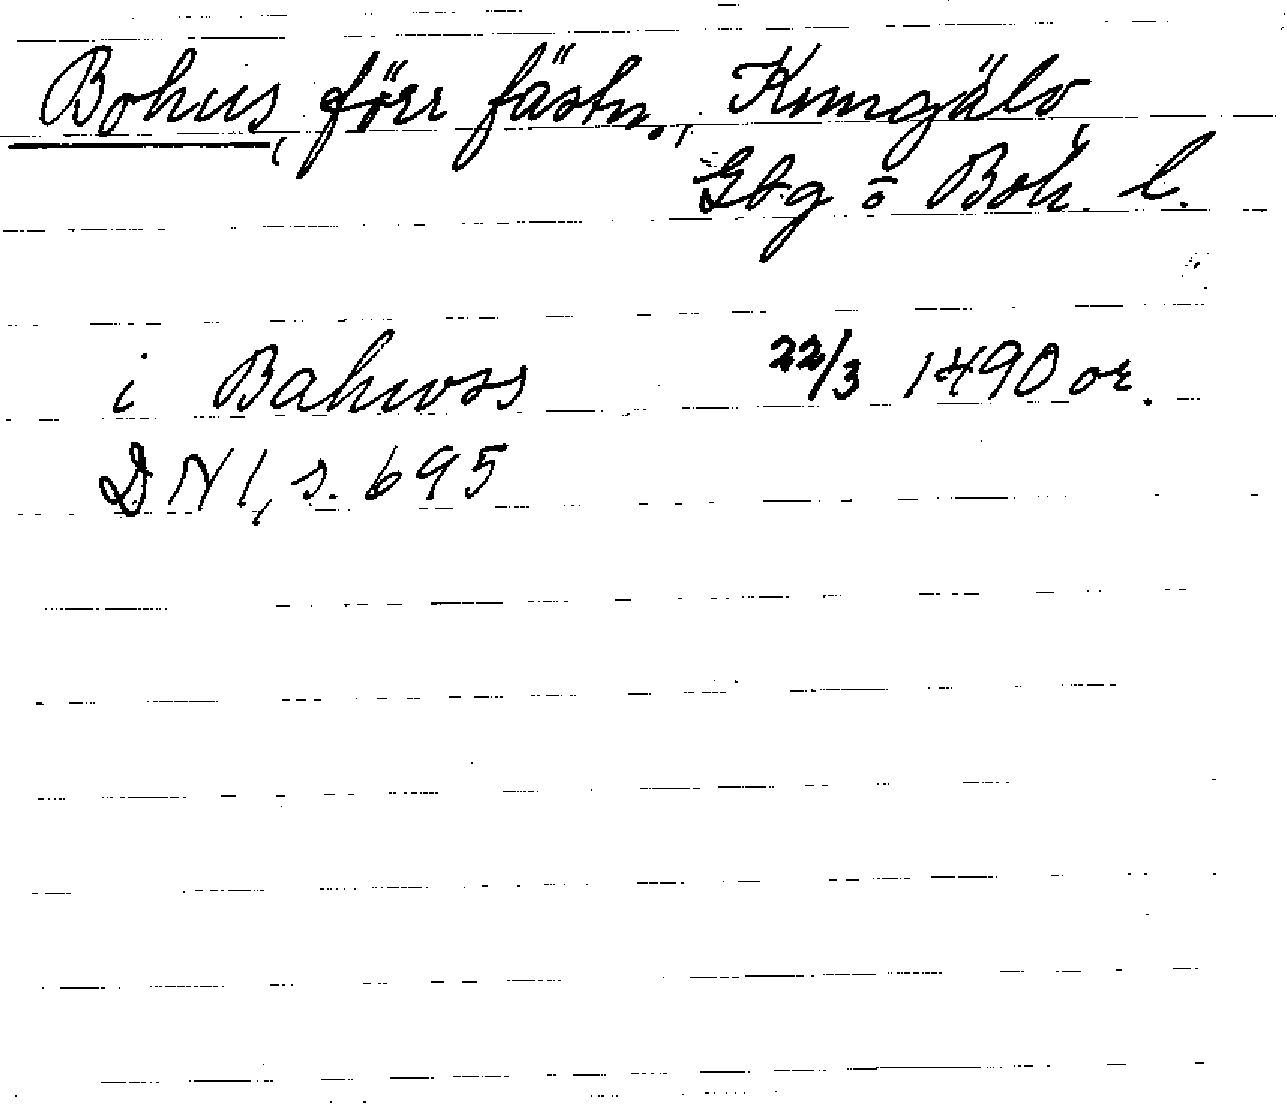 Bohus, förr fästn., Kungälv,
Gbg o Boh. l.
i Bahwss 22/3 1490 or.
DN 1, s. 695